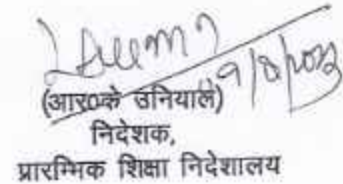 19/8/2023
(आर०के उनियाल)
निदेशक,
प्रारम्भिक शिक्षा निदेशालय